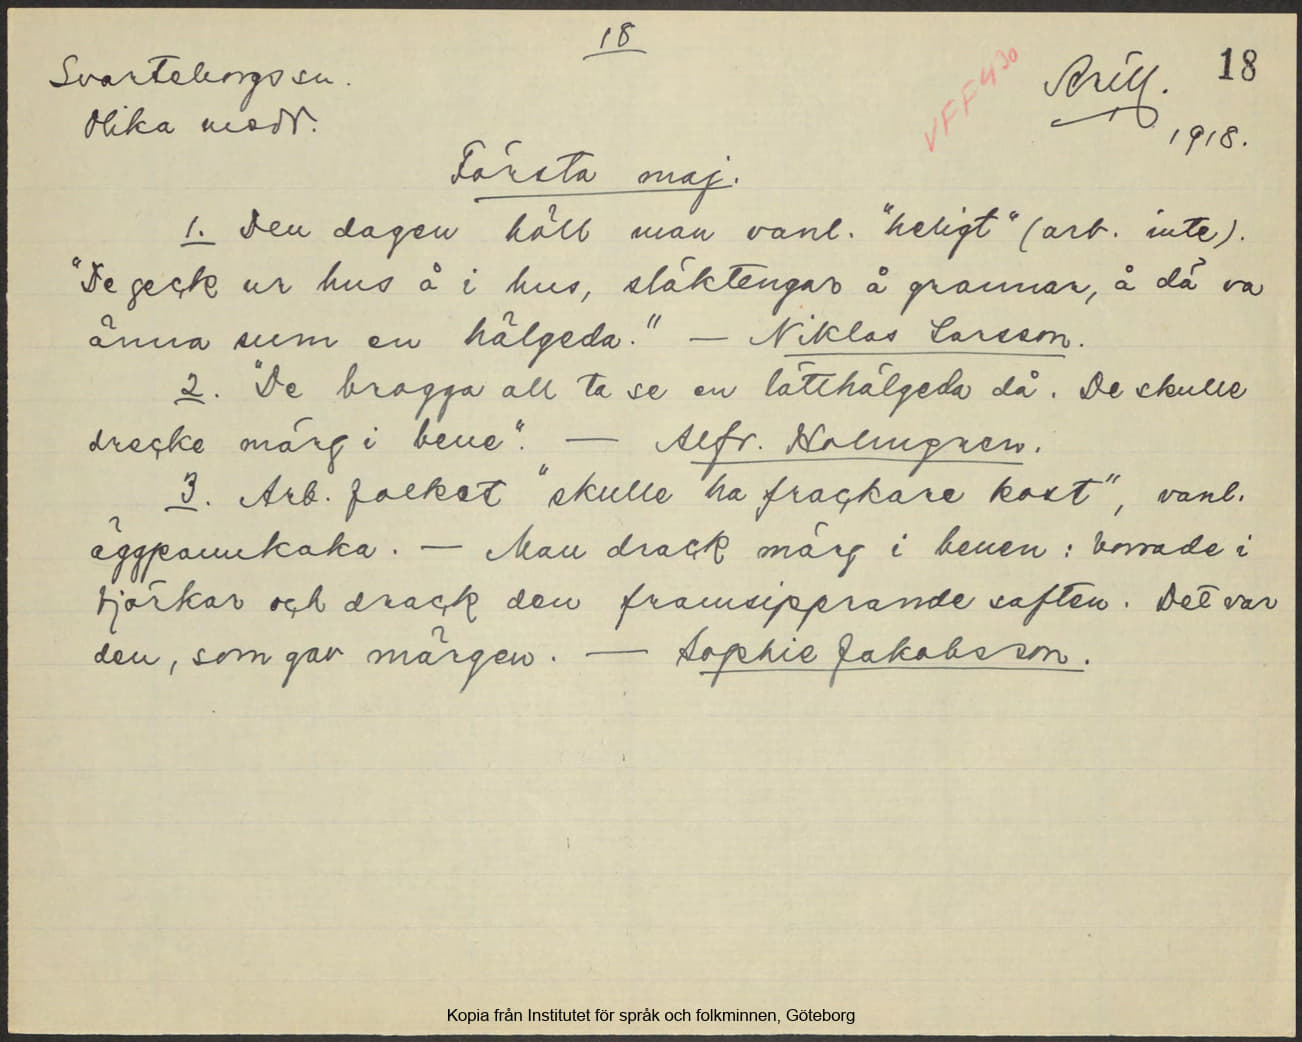 18
Svarteborgs sn.
Olika medd.
VFF 430
Brill.
18
1918.
Första maj.
1. Den dagen höll man vanl. "heligt" (arb. inte).
"De geck ur hus å i hus, släktengar å grannar, å då va
änna sum en hälgeda." — Niklas Larsson.
2. "De brogga all ta se en lätthälgeda då. De skulle
drecke märg i bene". — Alfr. Holmgren.
3. Arb. folket "skulle ha frackare kost", vanl.
äggpannkaka. — Man drack märg i benen: borrade i
björkar och drack den framsipprande saften. Det var
den, som gav märgen. — Sophie Jakobsson.
Kopia från Institutet för språk och folkminnen, Göteborg